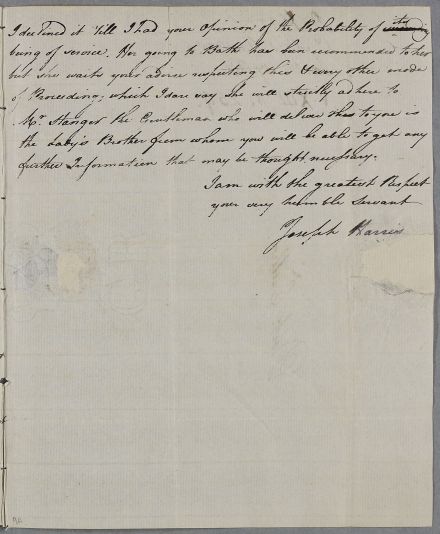 I declined it till I had your Opinion of the Probability of its
being of service. Her going to Bath has been recommended to her
but she waits your advice respecting this & every other mode
of Proceeding, which I dare say she will strictly adhere to
Mr. Stanger the Gentleman who will deliver this to you is
the Lady's Brother from whom you will be able to get any
further Information that may be thought necessary.
I am with the greatest Respect
your very humble Servant
Joseph Harris